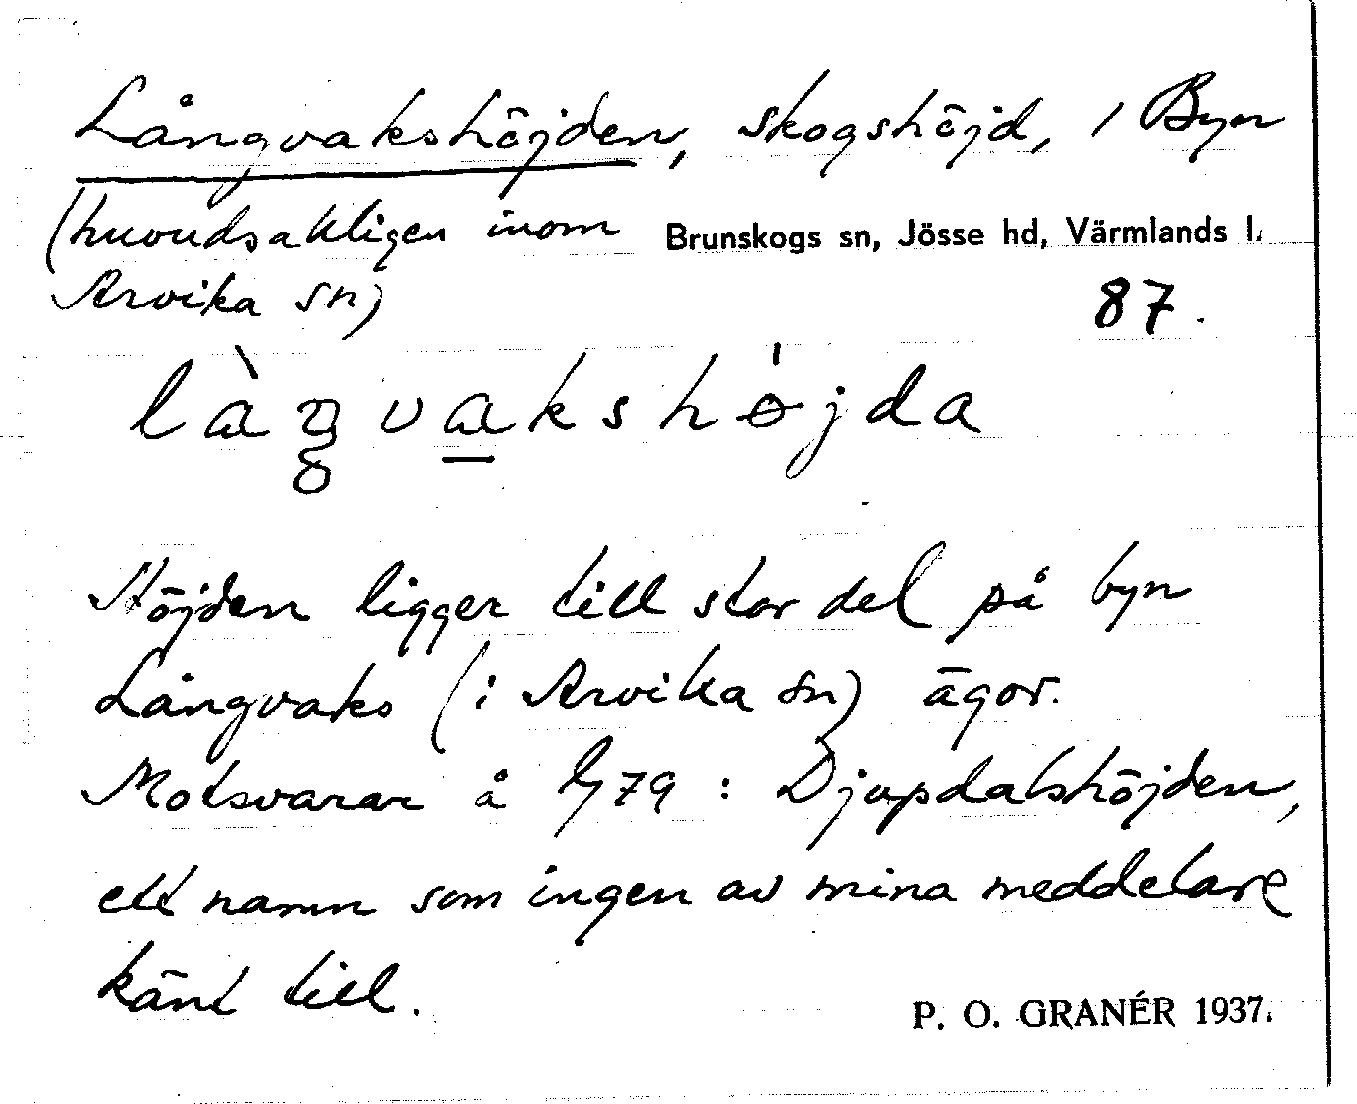 Långvakshöjden, skogshöjd, 1 Byn
(huvudsakligen inom Brunskogs sn, Jösse hd, Värmlands l.
Arvika sn) 87.
Höjden ligger till stor del på byn
Långvaks (i Arvika sn) ägor.
Motsvarar å 79 : Djupdalshöjden,
ett namn som ingen av mina meddelare
känt till.
P. O. GRANÉR 1937.